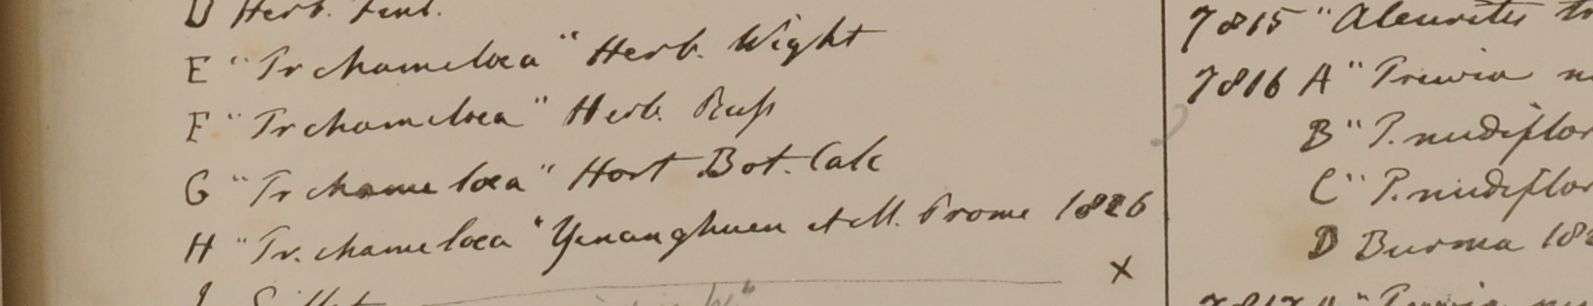 D Herb. Finl.
E "Tr chamelaea" Herb. Wight
F "Tr chamelaea" Herb. Ruſs
G "Tr chamelaea" Hort Bot. Calc
H "Tr. chamelaea" Yenanghuen et M. Prome 1826
x
7815 "Aleurites
7816 A "Trewia
B "T. nudiflor
C "T. nudiflor
D Burma